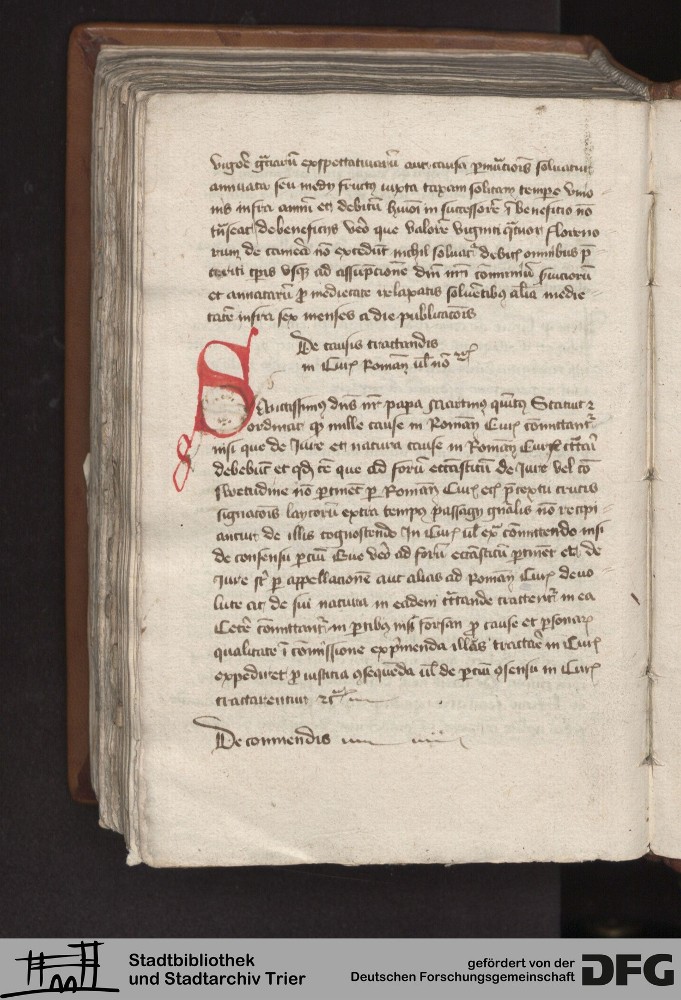 vigore gratiarum exspectativarum aut causa permutationis solvatur
annuata seu medii fructus iuxta taxam solitam tempore unio
nis infra annum et debitum huiusmodi in successorem in beneficio non
transeat de beneficiis vero que valorem viginti quatuor floreno
rum de camera non excedunt nichil solvatur debitis omnibus pre
teriti temporis usque ad assumptionem domini nostri communium serviciorum
et annatarum pro medietate relaxatis solventibus aliam medie
tatem infra sex menses a die publicationis
De causis tractandis
in Curia Romana vel non etc
Sanctissimus dominus noster papa Martinus quintus Statuit et
ordinat quod nulle cause in Romana Curia committantur
nisi que de Iure et natura cause in Romana Curia tractari
debebunt et quod cause que ad forum ecclesiasticum de Iure vel con
swetudine non pertinent per Romanam Curiam eciam pretextu crucis
signationis laycorum extra tempus passagii generalis non recipi
antur de illis cognoscendo In Curia vel extra committendo nisi
de consensu partium Que vero ad forum ecclesiasticum pertinent et de
Iure sicut per appellationem aut alias ad Romanam Curiam devo
lute aut de sui natura in eadem tractande tractentur in ea
Cetere committantur in partibus nisi forsan pro cause et personarum
qualitate in commissione exprimenda illas tractare in Curia
expediret pro iusticia consequenda vel de partium consensu in Curia
tractarentur etc
De commendis
Stadtbibliothek
und Stadtarchiv Trier
gefördert von der
Deutschen Forschungsgemeinschaft
DFG